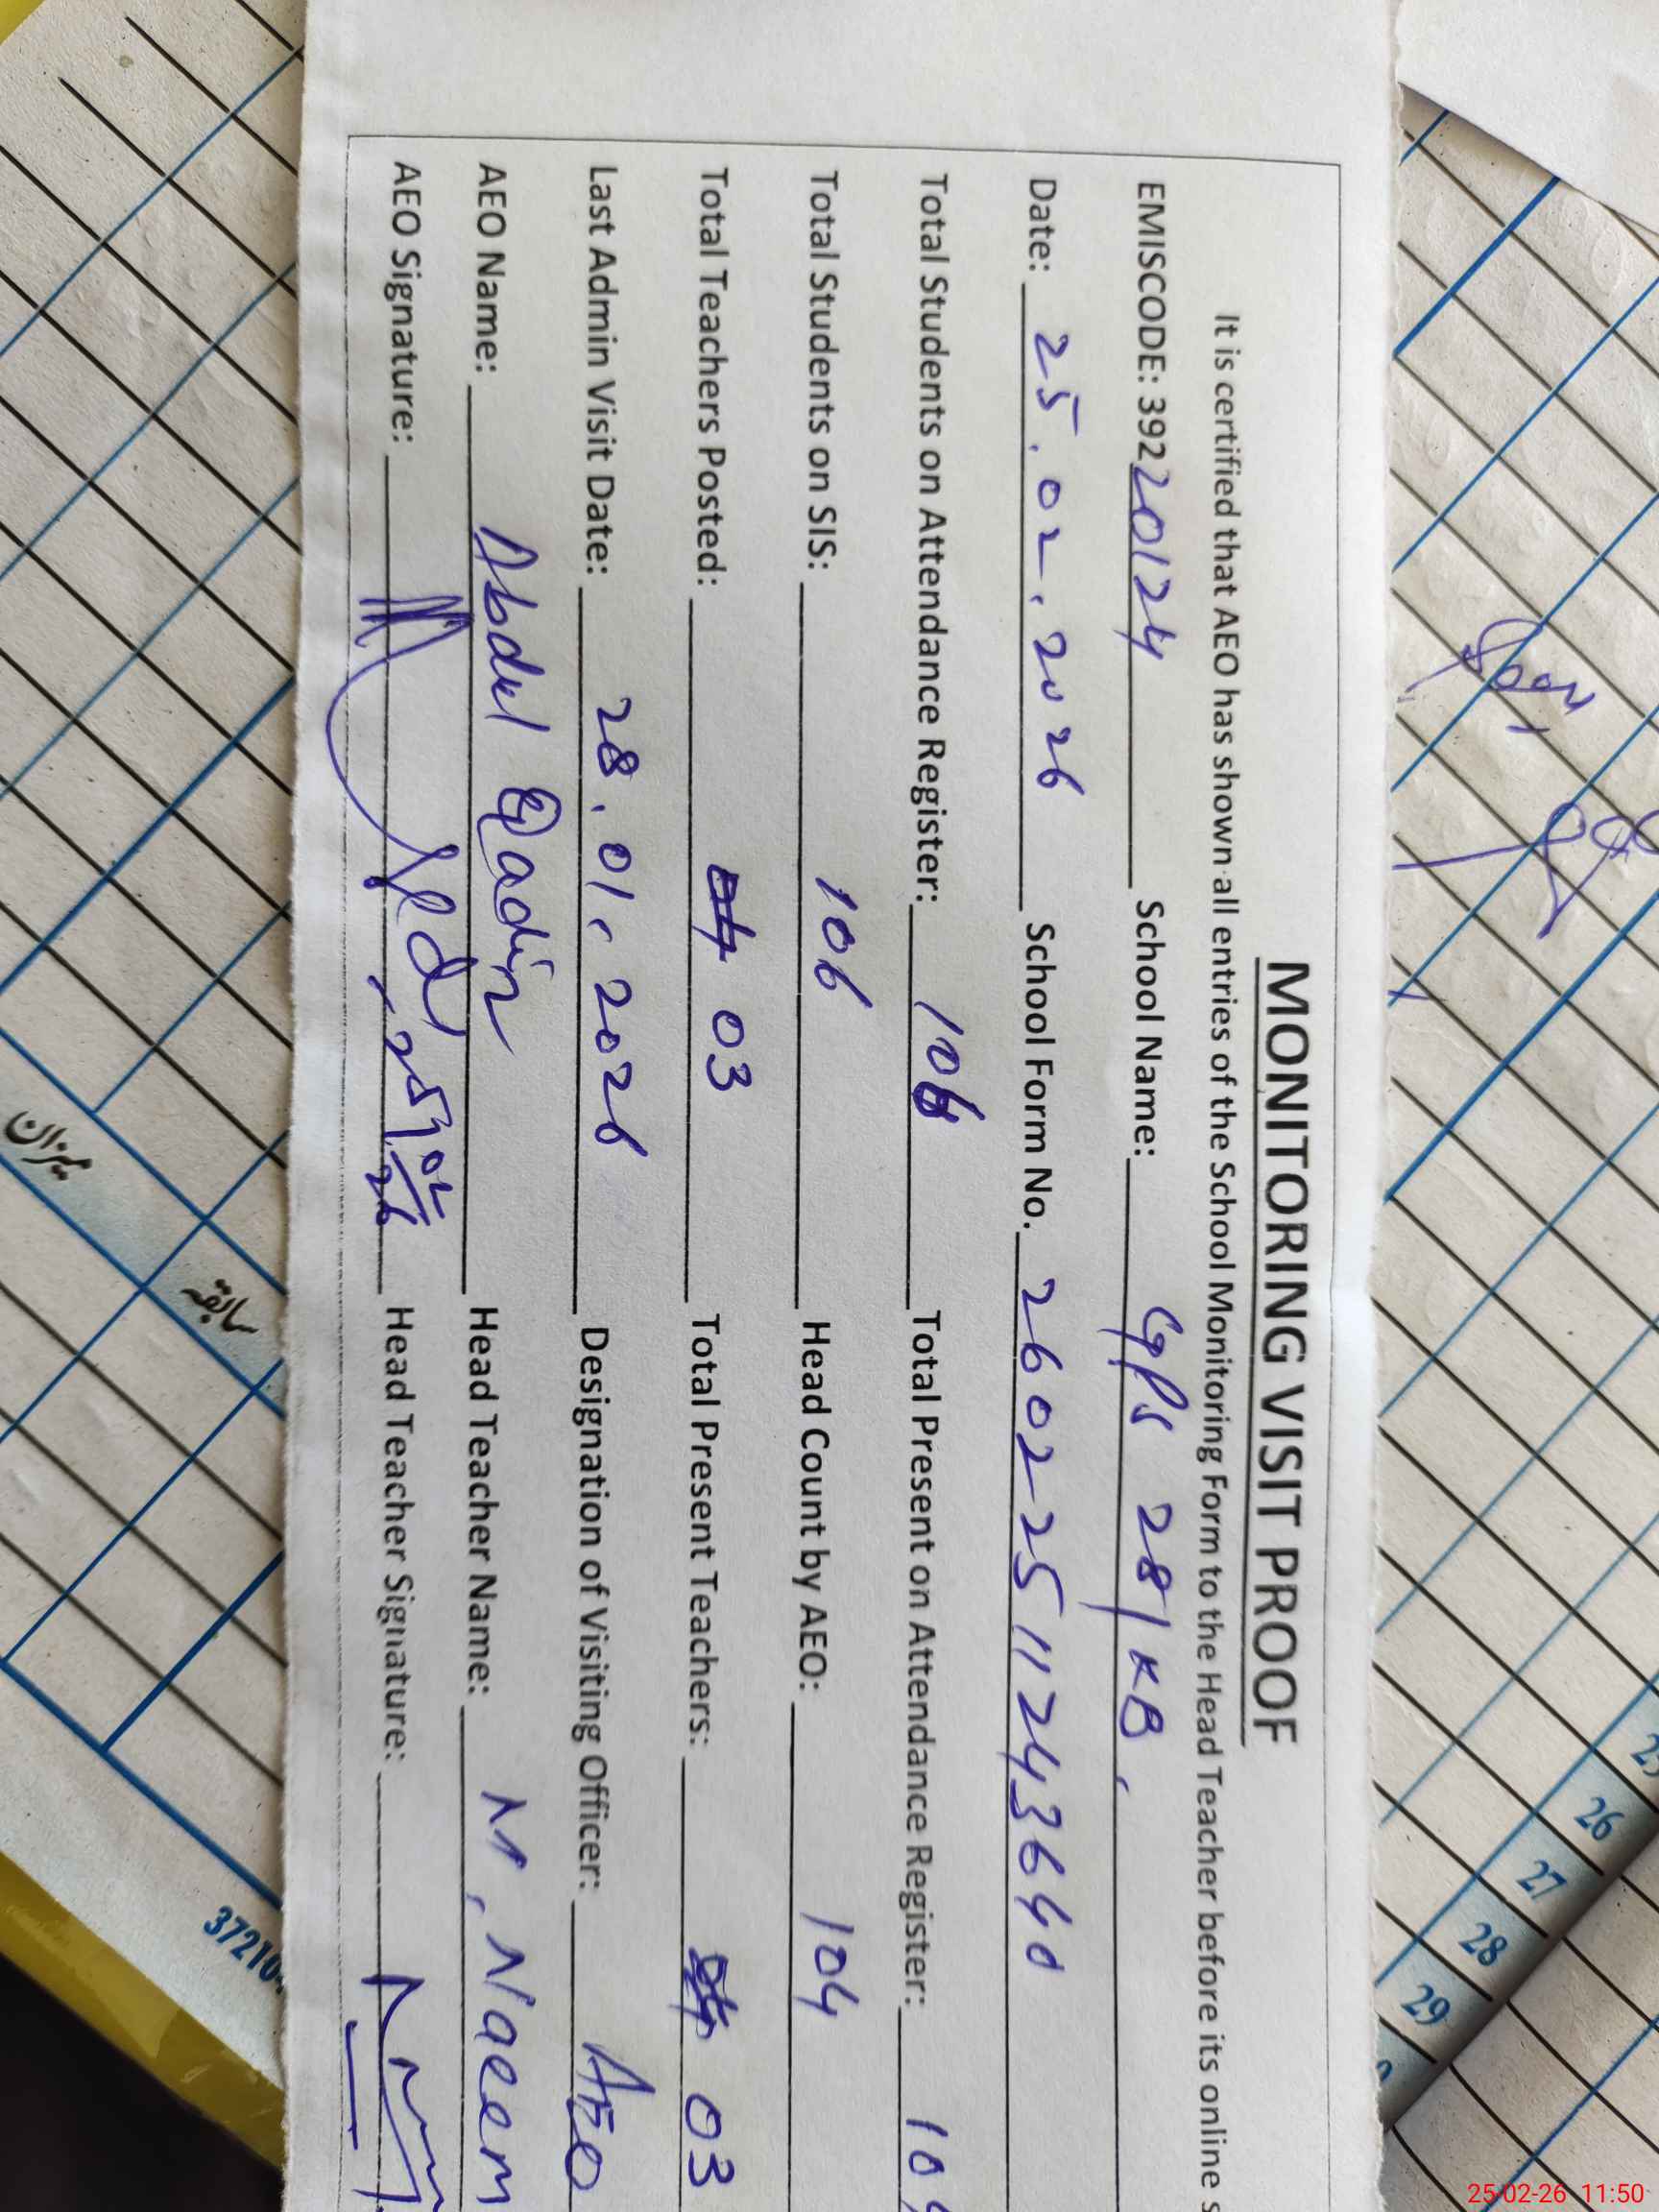 MONITORING VISIT PROOF
It is certified that AEO has shown all entries of the School Monitoring Form to the Head Teacher before its online s
EMISCODE: 39220124 School Name: GPS 281KB.
Date: 25.02.2026 School Form No. 260225112436
Total Students on Attendance Register: 106 Total Present on Attendance Register: 10
Total Students on SIS: 106 Head Count by AEO: 104
Total Teachers Posted: 03 Total Present Teachers: 03
Last Admin Visit Date: 28.01.2026 Designation of Visiting Officer: AEO
AEO Name: Abdul Qadir Head Teacher Name: M. Naeem
AEO Signature: 25/02/26 Head Teacher Signature:
میزان
سابقہ
37210
26
27
28
29
25-02-26 11:50